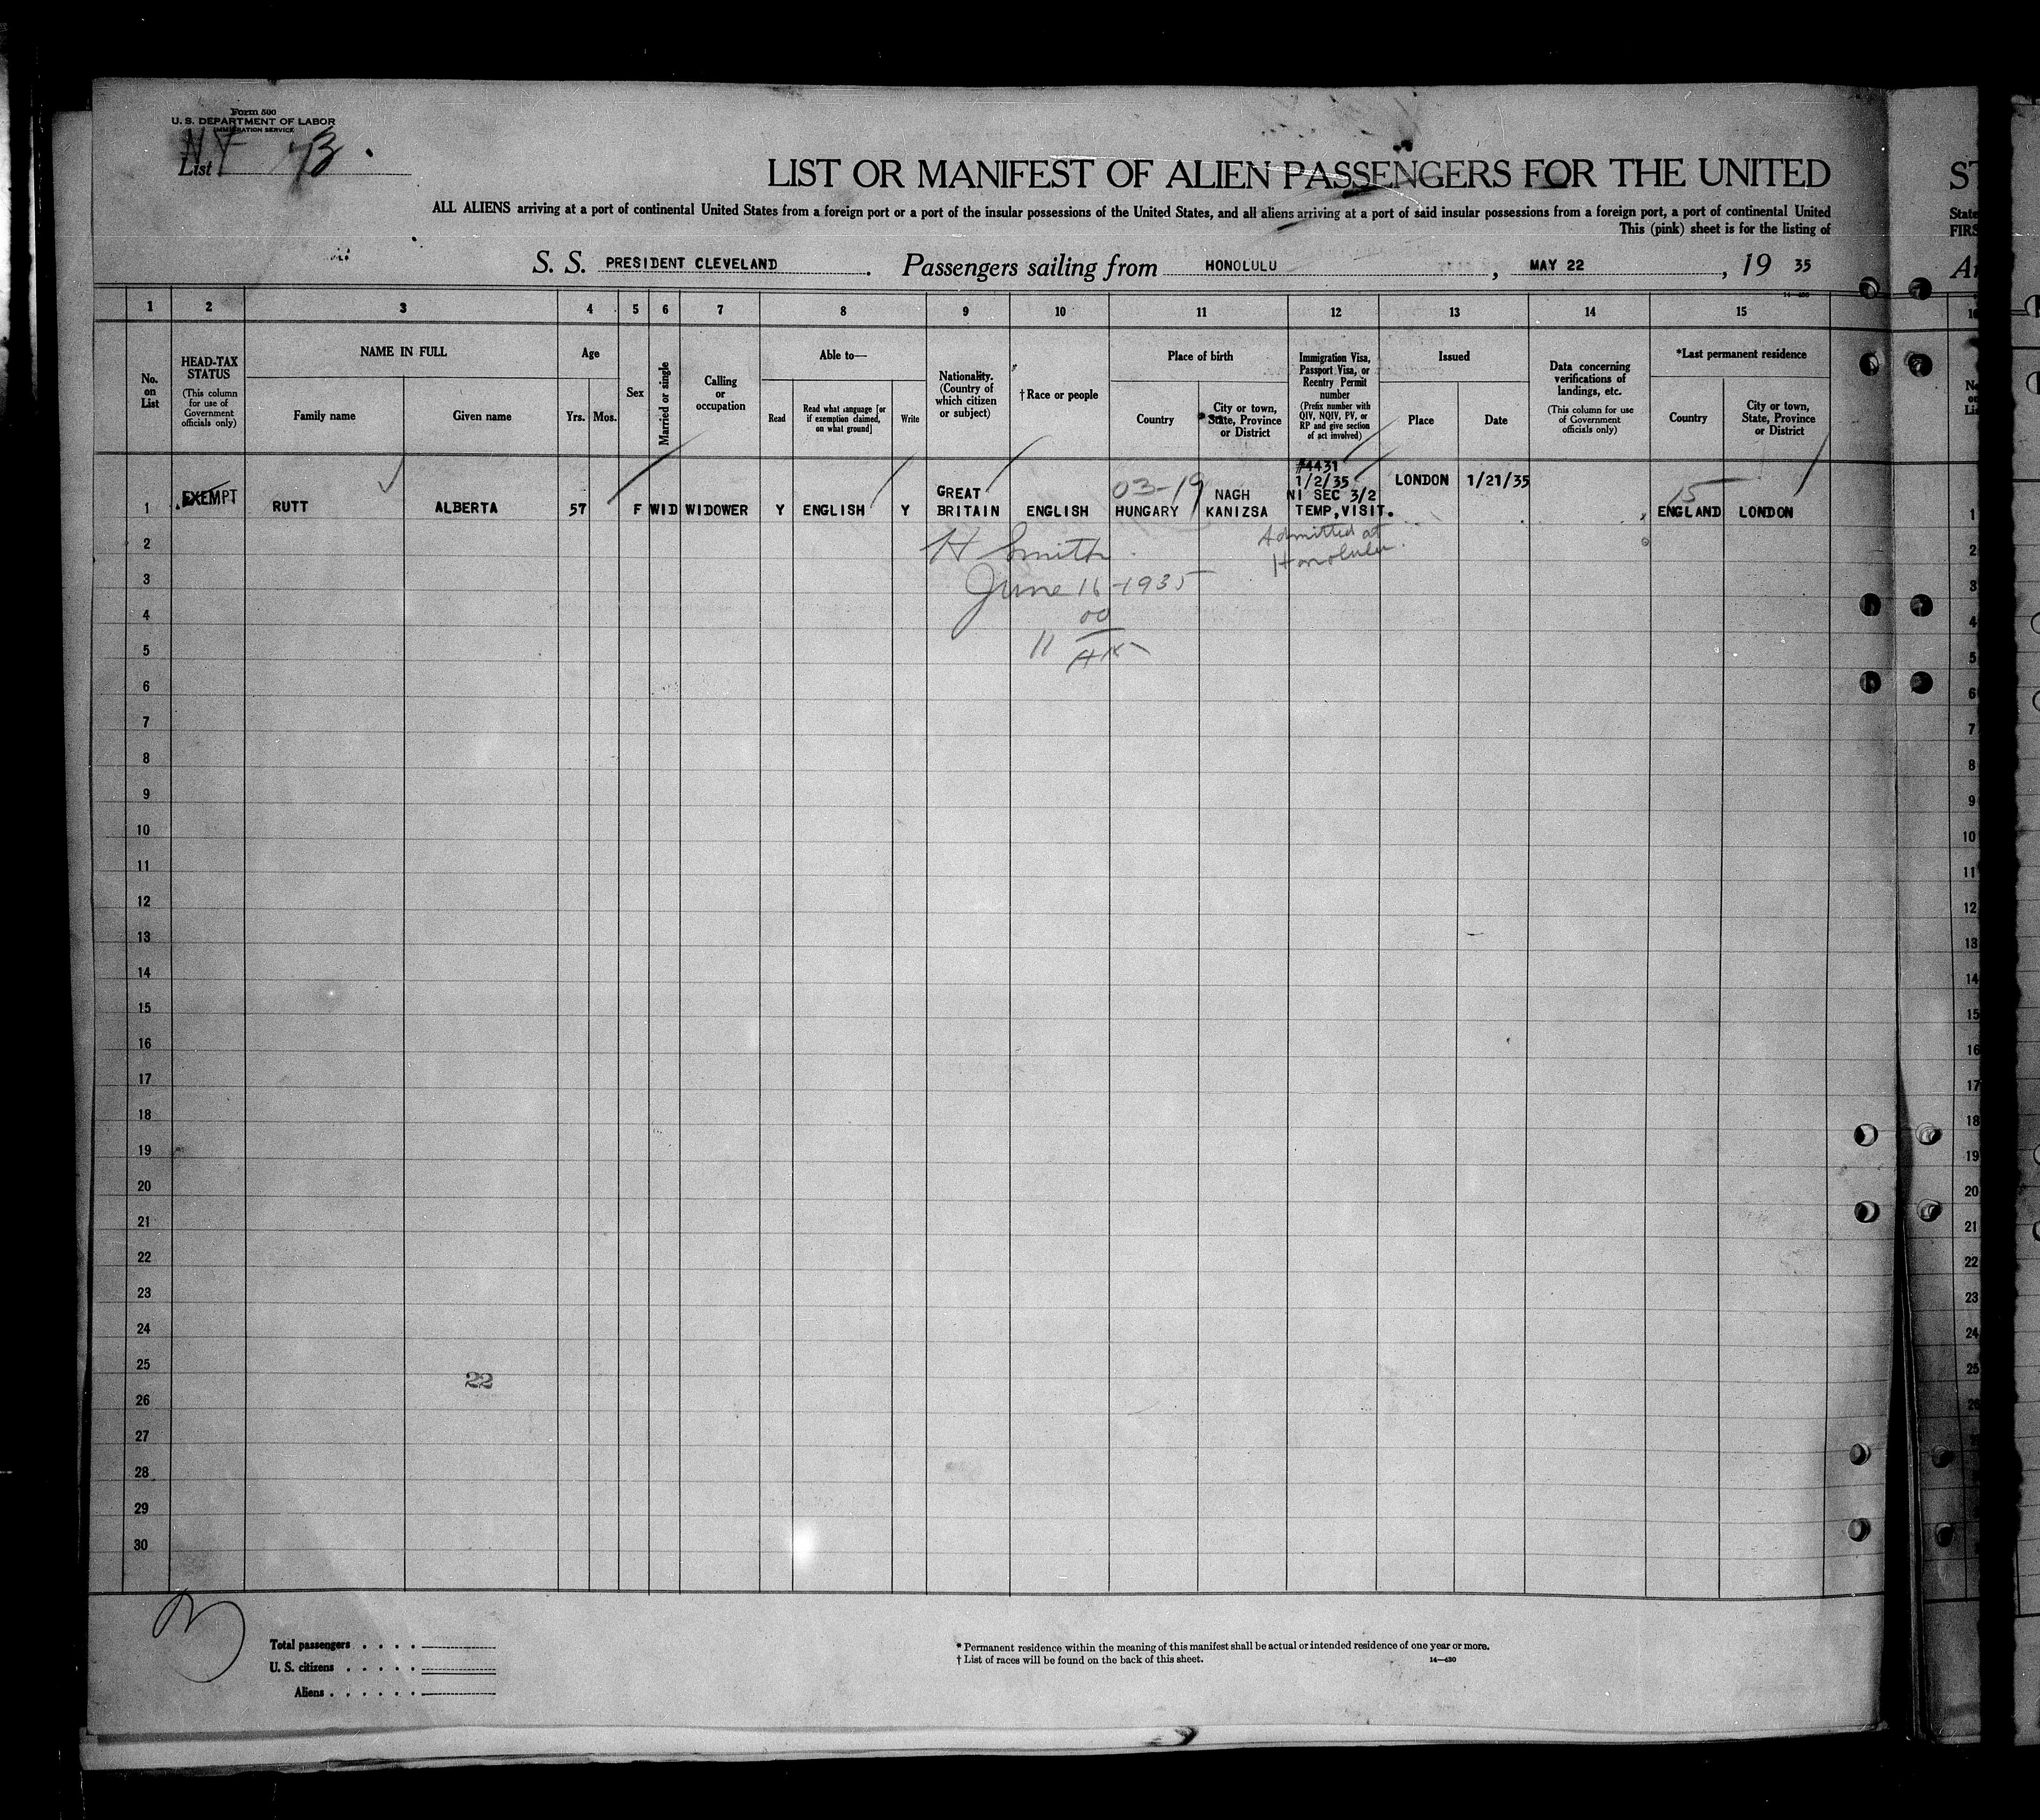 Form 500
U. S. DEPARTMENT OF LABOR
IMMIGRATION SERVICE
NY
List
LIST OR MANIFEST OF ALIEN PASSENGERS FOR THE UNITED
ST
ALL ALIENS arriving at a port of continental United States from a foreign port or a port of the insular possessions of the United States, and all aliens arriving at a port of said insular possessions from a foreign port, a port of continental United
State
This (pink) sheet is for the listing of
FIRS
S. S. PRESIDENT CLEVELAND . Passengers sailing from HONOLULU , MAY 22 , 19 35
14-630
1 2 3 4 5 6 7 8 9 10 11 12 13 14 15
No. on List
HEAD-TAX STATUS
(This column for use of Government officials only)
NAME IN FULL
Family name Given name
Age
Yrs. Mos.
Sex
Married or single
Calling or occupation
Able to—
Read
Read what language [or if exemption claimed, on what ground]
Write
Nationality. (Country of which citizen or subject)
† Race or people
Place of birth
Country
City or town, State, Province or District
Immigration Visa, Passport Visa, or Reentry Permit number
(Prefix number with QIV, NQIV, PV, or RP and give section of act involved)
Issued
Place Date
Data concerning verifications of landings, etc.
(This column for use of Government officials only)
*Last permanent residence
Country
City or town, State, Province or District
#4431
1/2/35
NI SEC 3/2
TEMP,VISIT.
1 EXEMPT RUTT ALBERTA 57 F WID WIDOWER Y ENGLISH Y GREAT BRITAIN ENGLISH 03-19 HUNGARY NAGH KANIZSA LONDON 1/21/35 15 ENGLAND LONDON 1
Admitted at
Honolulu.
H Smith
June 16-1935
00
11
2 2
3 3
4 4
5 5
6 6
7 7
8 8
9 9
10 10
11 11
12 12
13 13
14 14
15 15
16 16
17 17
18 18
19 19
20 20
21 21
22 22
23 23
24 24
25 25
22
26 26
27
28
29
30
Total passengers . . . .
U. S. citizens . . . . .
Aliens . . . . . .
* Permanent residence within the meaning of this manifest shall be actual or intended residence of one year or more.
† List of races will be found on the back of this sheet.
14—630